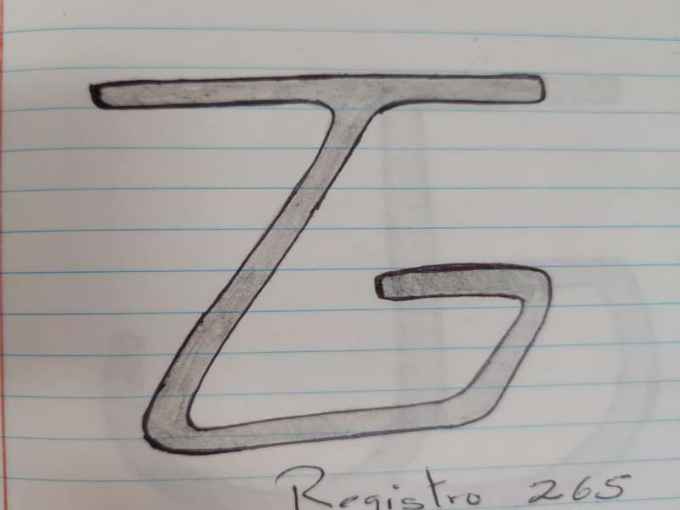 Registro 265